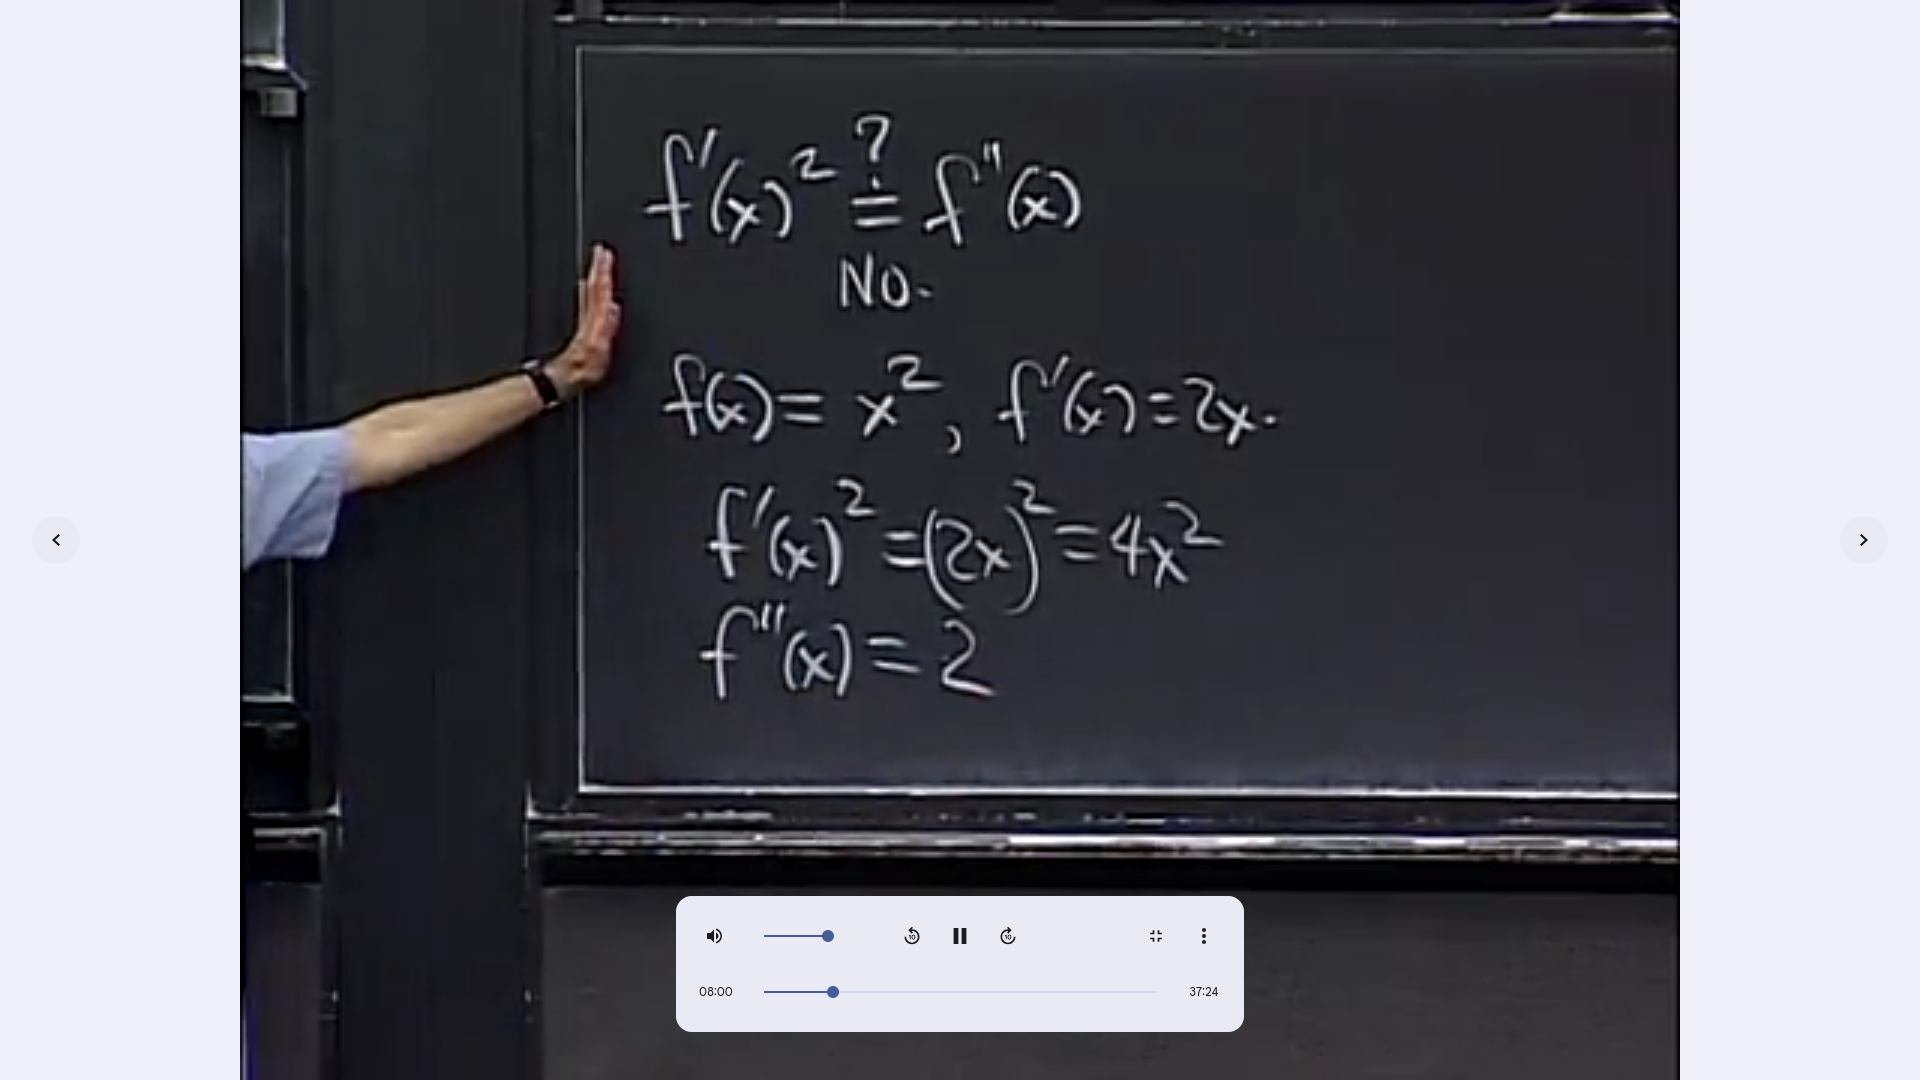 f'(x)² ≟ f''(x)
NO.
f(x) = x², f'(x) = 2x.
f'(x)² = (2x)² = 4x²
f''(x) = 2
10
10
08:00
37:24